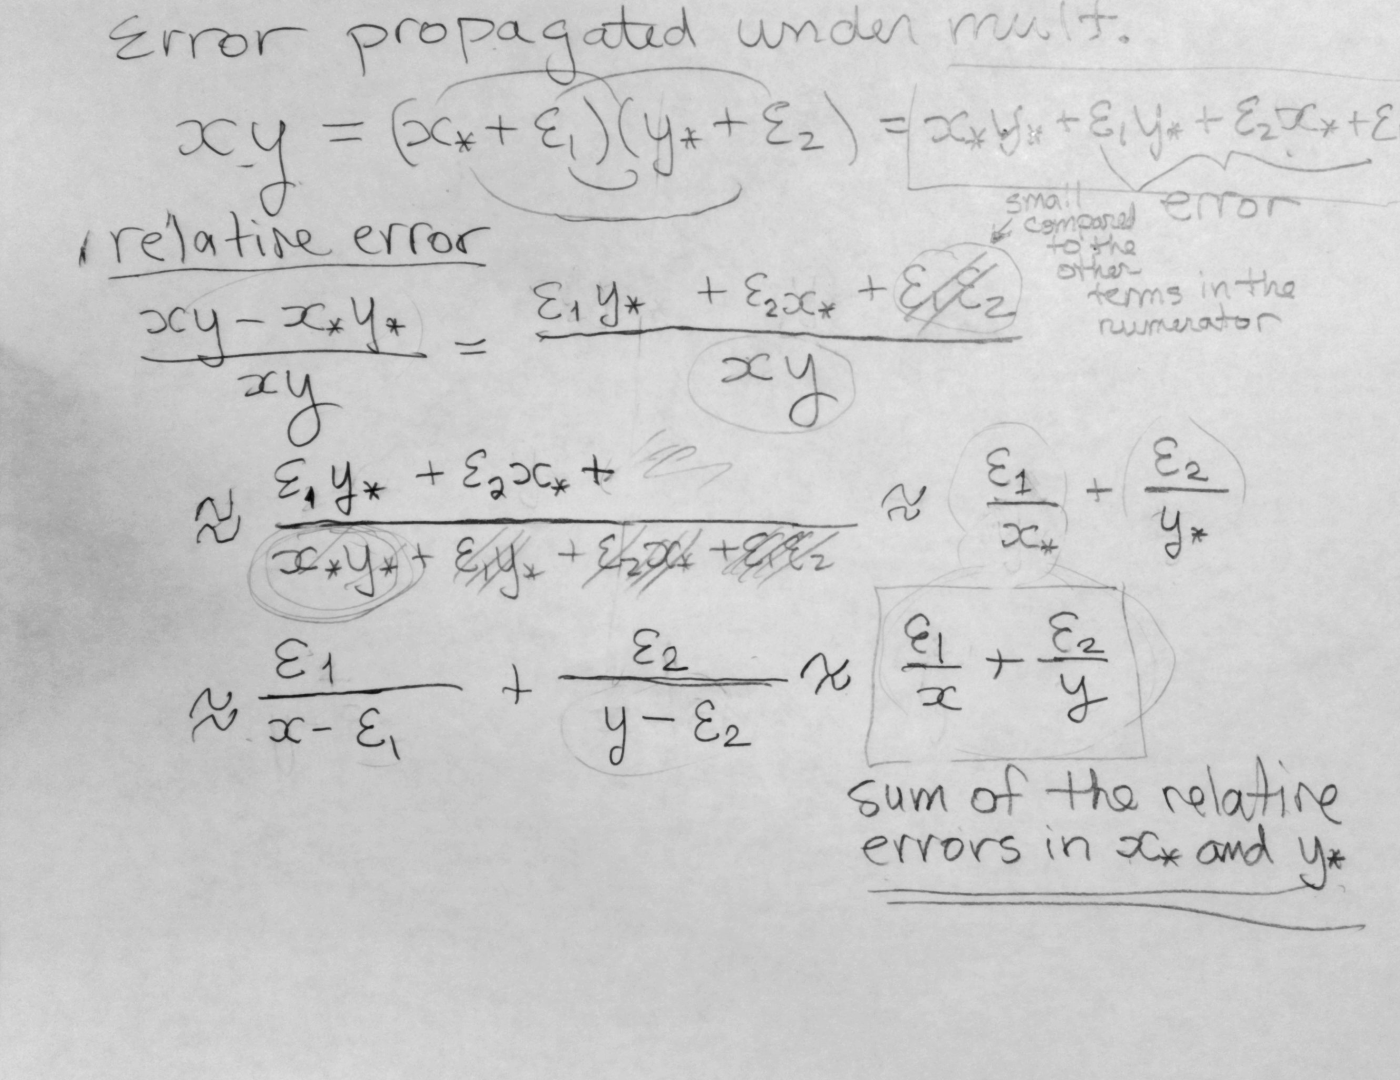 Error propagated under mult.
xy = (x* + ε1)(y* + ε2) = x*y* + ε1y* + ε2x* + ε
error
small
compared
to the
other
terms in the
numerator
relative error
(xy − x*y*)/(xy) = (ε1y* + ε2x* + ε1ε2)/(xy)
≈ (ε1y* + ε2x* +)/(x*y* + ε1y* + ε2x* + ε1ε2) ≈ ε1/x* + ε2/y*
≈ ε1/(x − ε1) + ε2/(y − ε2) ≈ ε1/x + ε2/y
sum of the relative
errors in x* and y*